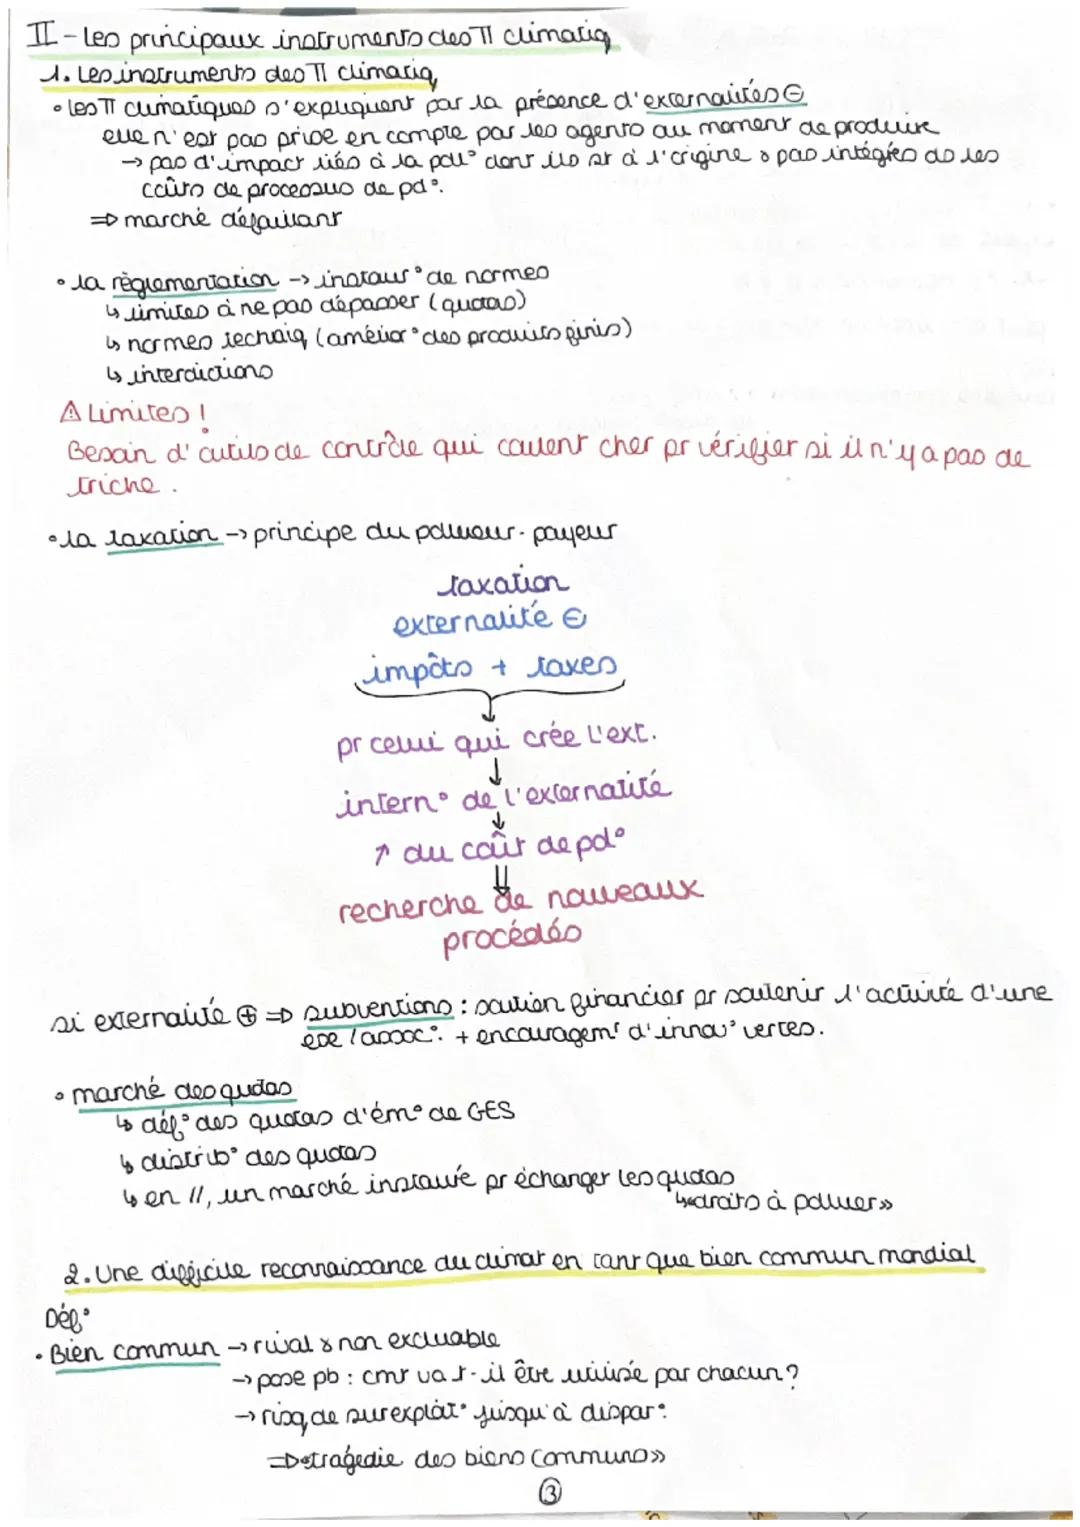 II - Les principaux instruments des Π climatiq
1. Les instruments des Π climatiq
• les Π climatiques s'expliquent par la présence d'externalités ⊖
elle n'est pas prise en compte par les agents au moment de produire
→ pas d'impact liés à la poll° dont ils st à l'origine & pas intégrés ds les
coûts de processus de pd°.
⇒ marché défaillant
• la règlementation → instaur° de normes
↳ limites à ne pas dépasser (quotas)
↳ normes techniq (amélior° des produits finis)
↳ interdictions
⚠ Limites !
Besoin d'outils de contrôle qui coutent cher pr vérifier si il n'y a pas de
triche.
• la taxation → principe du pollueur-payeur
taxation
externalité ⊖
impôts + taxes
pr celui qui crée l'ext.
↓
intern° de l'externalité
↓
↑ du coût de pd°
⇓
recherche de nouveaux
procédés
si externalité ⊕ ⇒ subventions : soutien financier pr soutenir l'activité d'une
ese / assoc°. + encouragemt d'innov° vertes.
• marché des quotas
↳ déf° des quotas d'ém° de GES
↳ distrib° des quotas
↳ en //, un marché instauré pr échanger les quotas
↳ «droits à polluer»
2. Une difficile reconnaissance du climat en tant que bien commun mondial
Déf°
• Bien commun → rival & non excluable
→ pose pb : cmt va t-il être utilisé par chacun ?
→ risq de surexploit° jusqu'à dispar°.
⇒ «tragédie des biens communs»
3